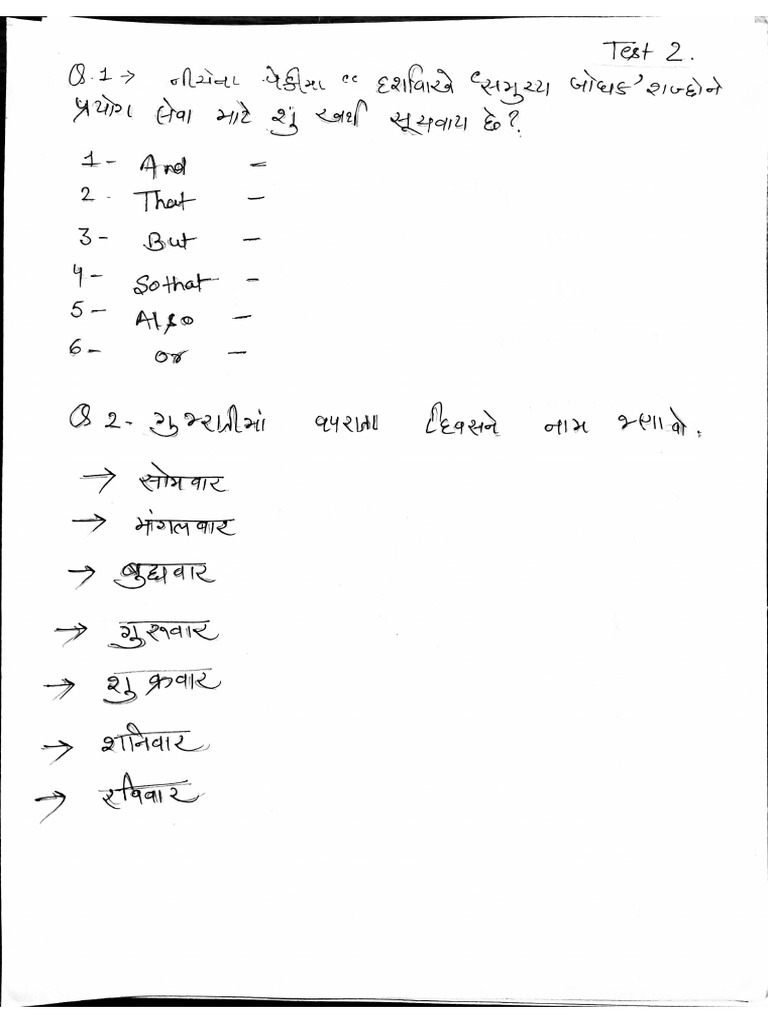 Test 2.
Q.1→ નીચેના પૈકીમા " દર્શાવેલ "સમુચ્ચ બોધક' શબ્દોને
પ્રયોગ સેવા માટે શું અર્થ સૂચવાય છે?
1- And -
2. That -
3- But -
4- Sothat -
5- Also -
6- or -
Q 2- ગુજરાતીમાં વપરાતા દિવસને નામ જણાવો.
→ सोमवार
→ मांगलवार
→ बुधवार
→ गुरुवार
→ शुक्रवार
→ शनिवार
→ रविवार